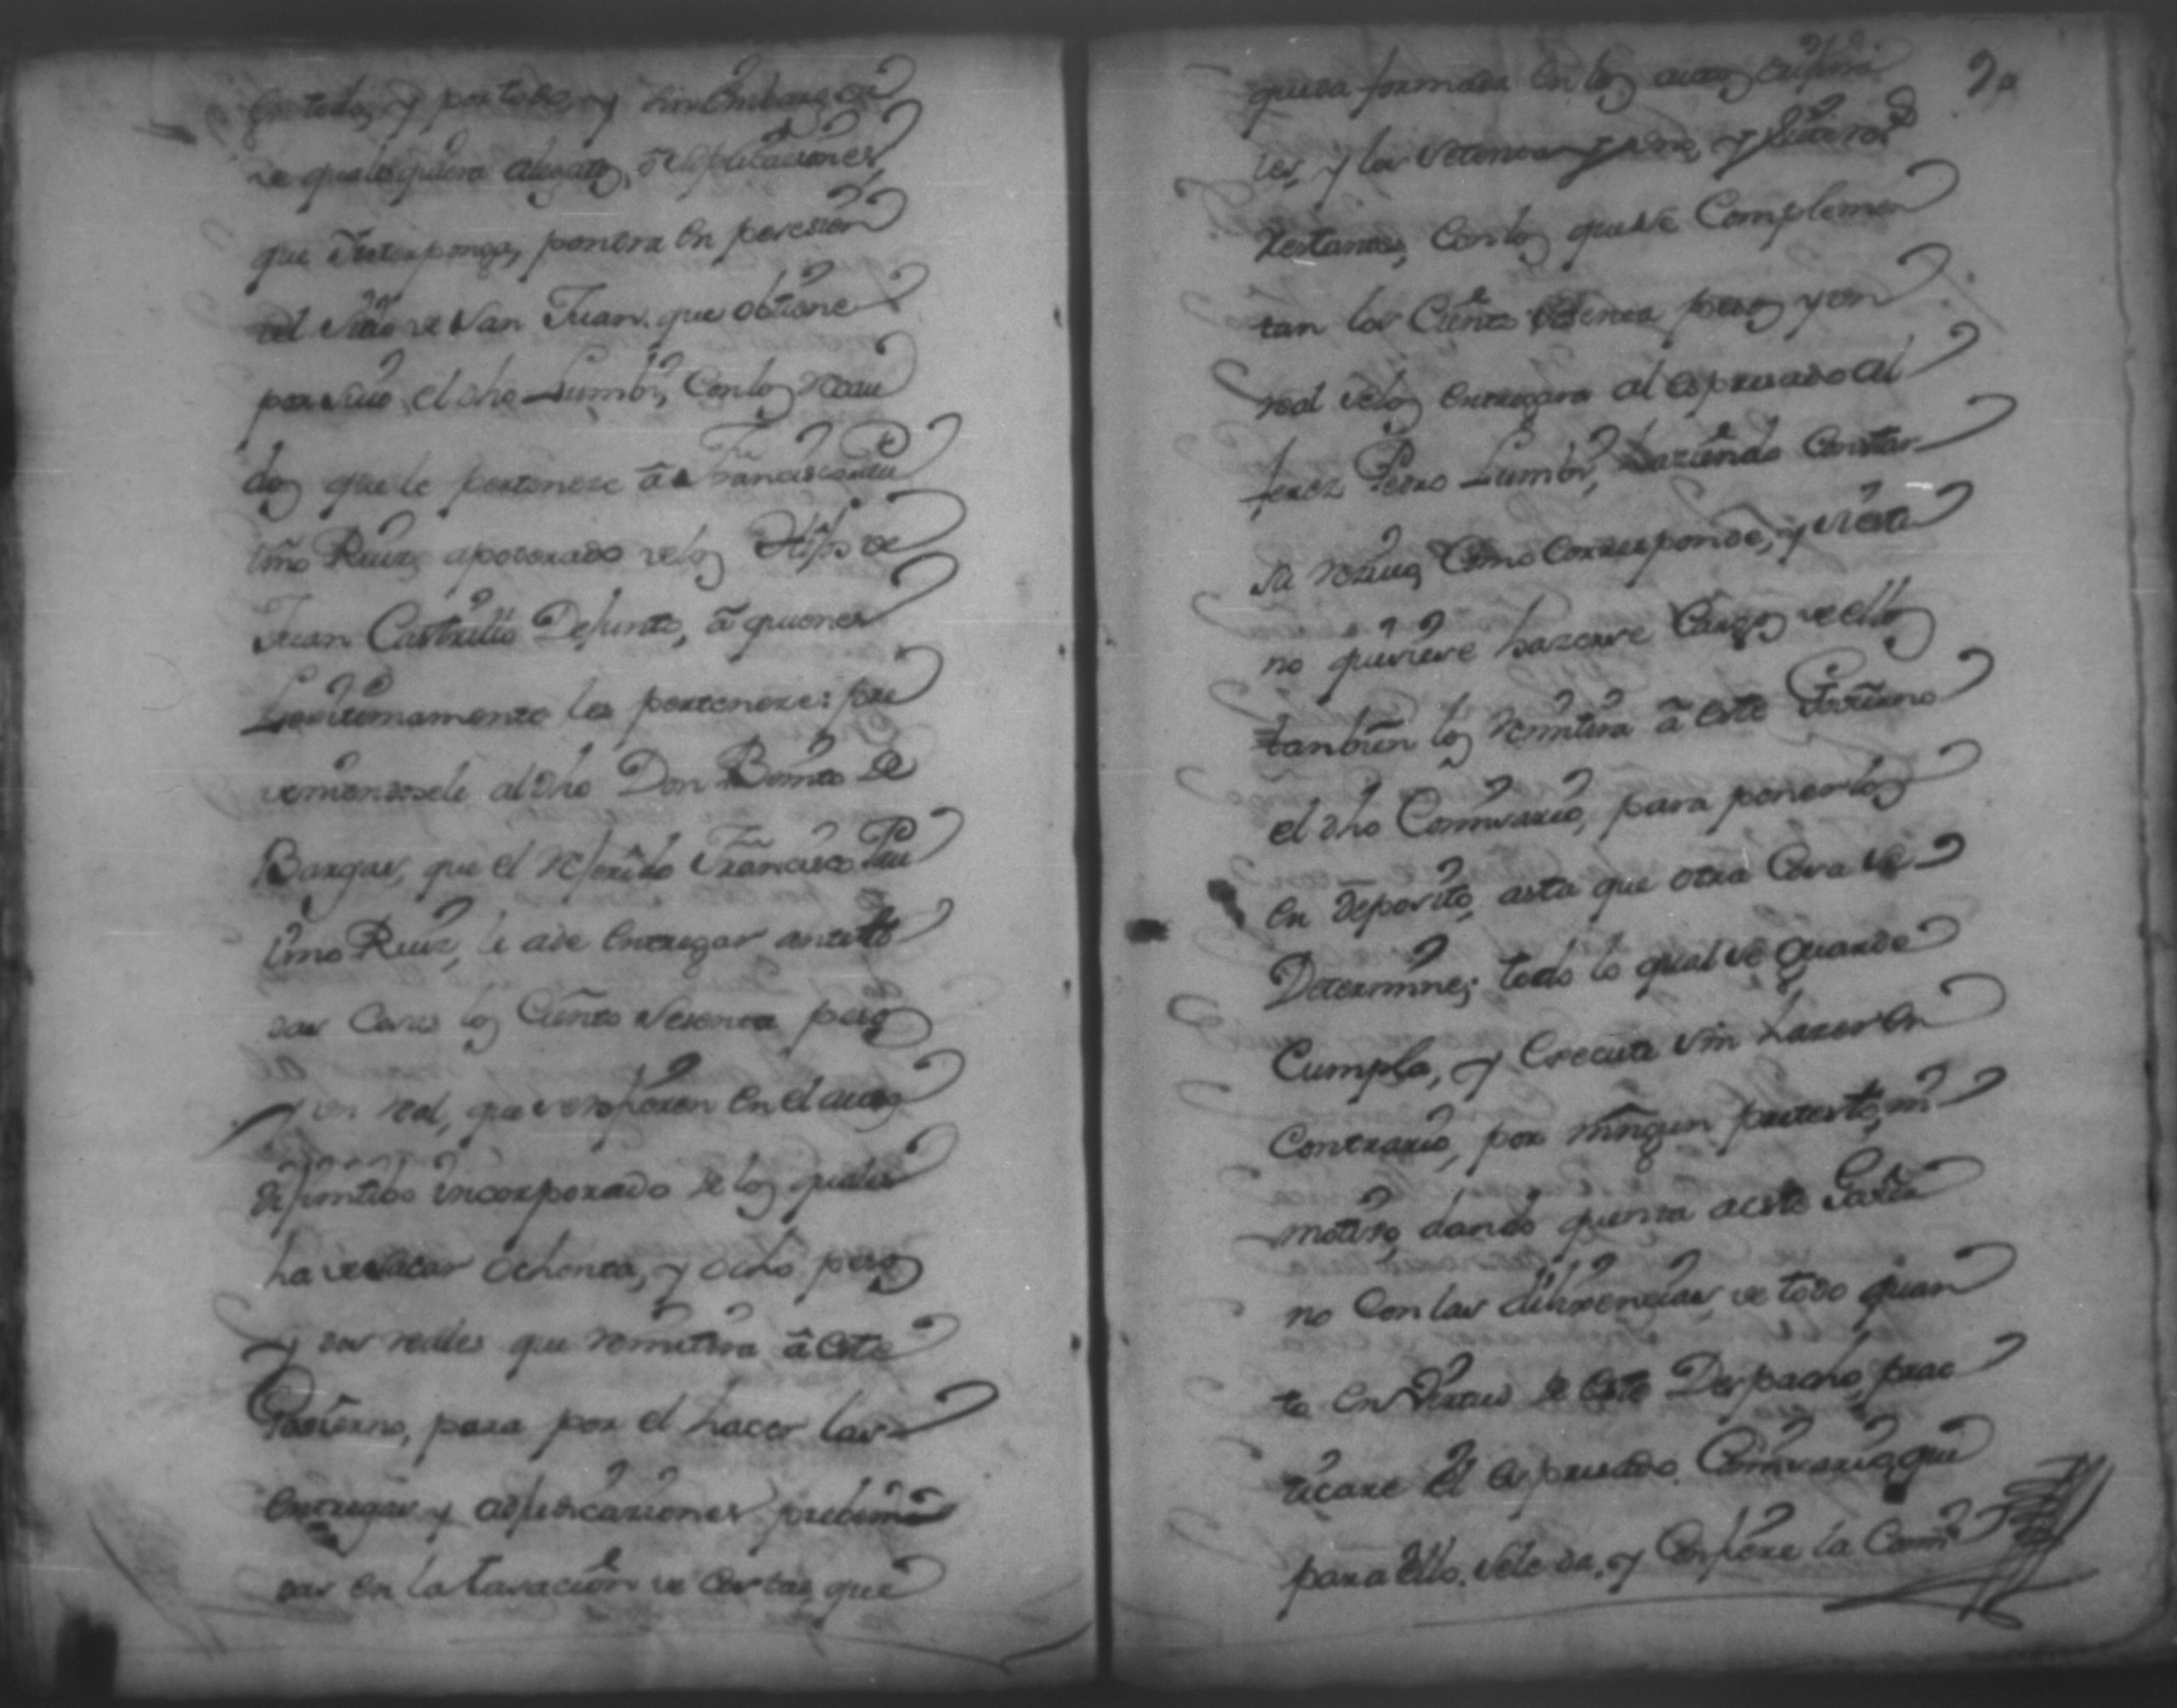 en todo, y por todo, y sin embargo
de qualesquiera alegatos, o suplicaciones
que interponga, pondra en posesion
del sitio de San Juan que obtiene
por suio el dho Lumbi, con los
dos que le pertenese â Francisco Pau
lino Ruiz, apoderado de los Hijos de
Juan Castrillo Defunto, â quienes
Lexitimamente les pertenese: pre
viniendosele al dho Don Benito de
Bargas, que el referido Francisco Pau
lino Ruiz, le a de entregar ante to
das cosas los ciento sesenta pesos
y un real, que se refieren en el auto
difinitibo incorporado de los quales
ha de sacar ochenta, y ocho pesos
y dos reales que remitira â este
Govierno, para por el hacer las
entregas y adjudicaziones prebeni
das en la tasacion de costas, que
queda formada en los autos
les, y los setenta y uno, y
restantes, con los que se complemen
tan los ciento sesenta pesos y un
real se los entregara al espresado al
ferez Pedro Lumbi, haziendo constar
su reciuo, como corresponde, y si esta
no quisiese hazerse cargo de ellos
tanbien los remitira â este Govierno
el dho Comisario, para ponerlos
en deposito, asta que otra cosa se
Determine; todo lo qual se guarde
Cumpla, y execute sin hazer en
contrario, por ningun pretexto, ni
motibo, dando quenta a este Govier
no con las dilixencias de todo quan
to en virtud de este Despacho, prac
ticare el espresado Comisario, que
para ello, se le da, y confiere la Comi